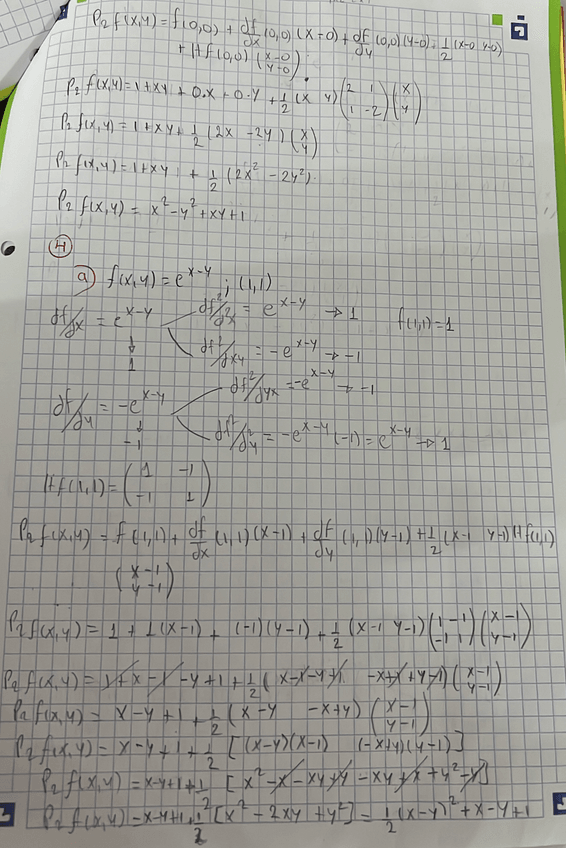 P₂ f(x,y) = f(0,0) + df/dx (0,0) (x-0) + df/dy (0,0) (y-0) + 1/2 (x-0 y-0)
+ Hf(0,0) (x-0 y-0)
P₂ f(x,y) = 1+xy + 0·x + 0·y + 1/2 (x y) (2 1 1 -2) (x y)
P₂ f(x,y) = 1+xy + 1/2 (2x -2y) (x y)
P₂ f(x,y) = 1+xy + 1/2 (2x² - 2y²)
P₂ f(x,y) = x² - y² + xy + 1
4
a) f(x,y) = e^(x-y) ; (1,1)
df/dx = e^(x-y) → 1
df²/d²x = e^(x-y) → 1 f(1,1) = 1
df²/dxy = -e^(x-y) → -1
df/dy = -e^(x-y) → -1
df²/dyx = -e^(x-y) → -1
df²/d²y = -e^(x-y) (-1) = e^(x-y) → 1
Hf(1,1) = (1 -1 -1 1)
P₂ f(x,y) = f(1,1) + df/dx (1,1) (x-1) + df/dy (1,1) (y-1) + 1/2 (x-1 y-1) Hf(1,1)
(x-1 y-1)
P₂ f(x,y) = 1 + 1(x-1) + (-1)(y-1) + 1/2 (x-1 y-1) (1 -1 -1 1) (x-1 y-1)
P₂ f(x,y) = 1+x-1-y+1 + 1/2 (x-1-y+1 -x+1+y-1) (x-1 y-1)
P₂ f(x,y) = x-y+1 + 1/2 (x-y -x+y) (x-1 y-1)
P₂ f(x,y) = x-y+1 + 1/2 [(x-y)(x-1) (-x+y)(y-1)]
P₂ f(x,y) = x-y+1 + 1/2 [x²-x-xy+y-xy+x+y²-y]
P₂ f(x,y) = x-y+1 + 1/2 [x²-2xy+y²] = 1/2 (x-y)² + x-y+1